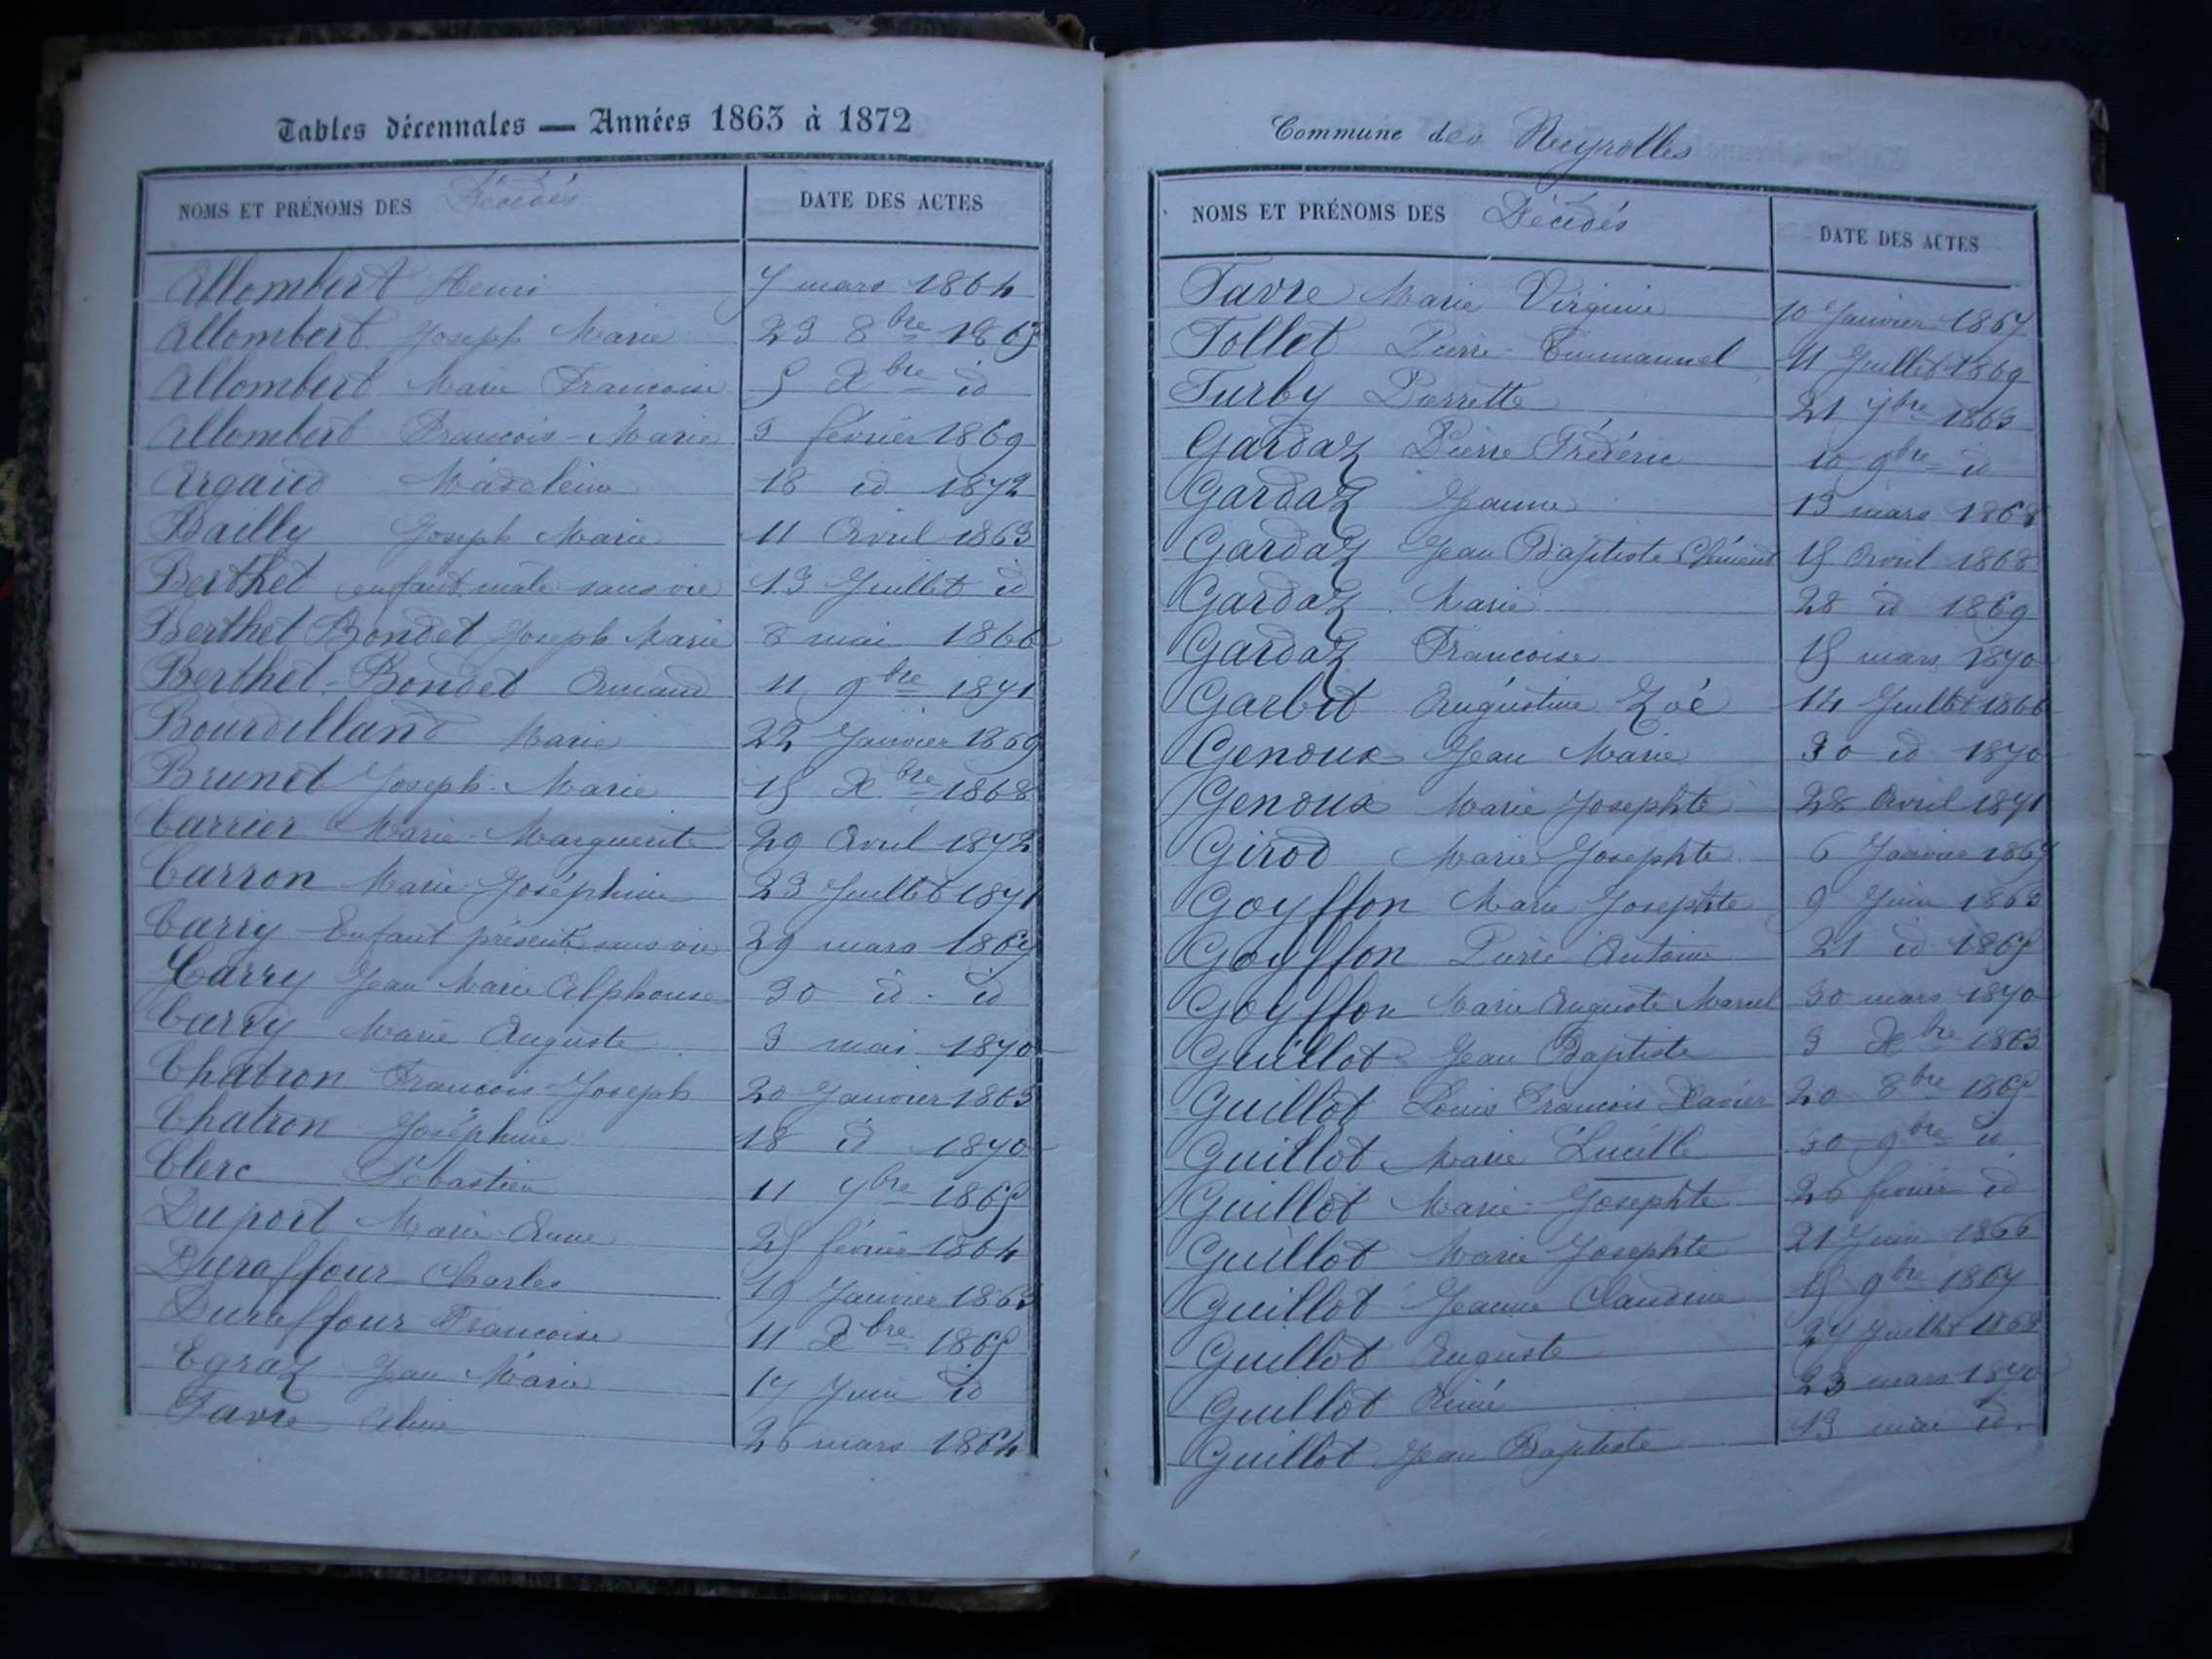 Tables décennales — Années 1863 à 1872
NOMS ET PRÉNOMS DES Décédés DATE DES ACTES
Allombert Henri 7 mars 1864
Allombert Joseph Marie 23 8bre 1865
Allombert Marie Francoise 5 Xbre id
Allombert Francois-Marie 3 février 1869
Argaud Madeleine 18 id 1872
Bailly Joseph Marie 11 Avril 1863
Berthet enfant mâle sans vie 13 Juillet id
Berthet Bondet Joseph Marie 8 mai 1866
Berthet-Bondet Armand 11 9bre 1871
Bourdilland Marie 22 Janvier 1869
Brunet Joseph-Marie 15 Xbre 1868
Carrier Marie-Marguerite 29 Avril 1872
Carron Marie Joséphine 23 Juillet 1871
Carry Enfant présenté sans vie 29 mars 1867
Carry Jean Marie Alphonse 30 id. id
Carry Marie Auguste 3 mai 1870
Chatron Francois-Joseph 20 Janvier 1863
Chatron Joséphine 18 id 1870
Clerc Sébastien 11 7bre 1865
Duport Marie-Anne 25 février 1864
Duraffour Charles 19 Janvier 1863
Duraffour Francoise 11 Xbre 1865
Egraz Jean Marie 17 Juin id
Favre Aline 26 mars 1864
Commune des Neyrolles
NOMS ET PRÉNOMS DES Décédés DATE DES ACTES
Favre Marie Virginie 10 Janvier 1867
Follet Pierre-Emmanuel 11 Juillet 1869
Furby Pierrette 21 7bre 1863
Gardaz Pierre Frédéric 10 9bre id
Gardaz Jeanne 13 mars 1868
Gardaz Jean Baptiste Clément 15 Avril 1868
Gardaz Marie 28 id 1869
Gardaz Francoise 15 mars 1870
Garbit Augustine Zoé 14 Juillet 1866
Genoux Jean Marie 30 id 1870
Genoux Marie Josephte 28 Avril 1871
Girod Marie Josephte 6 Janvier 1867
Goyffon Marie Josephte 9 Juin 1863
Goyffon Pierre Antoine 21 id 1865
Goyffon Marie Auguste Marcel 30 mars 1870
Guillot Jean Baptiste 3 Xbre 1863
Guillot Louis Francois Xavier 20 8bre 1865
Guillot Marie Lucille 30 9bre id
Guillot Marie-Josephte 26 février id
Guillot Marie Josephte 21 Juin 1866
Guillot Jeanne Claudine 15 9bre 1867
Guillot Auguste 27 Juillet 1868
Guillot Aimé 23 mars 1870
Guillot Jean Baptiste 13 mai id.